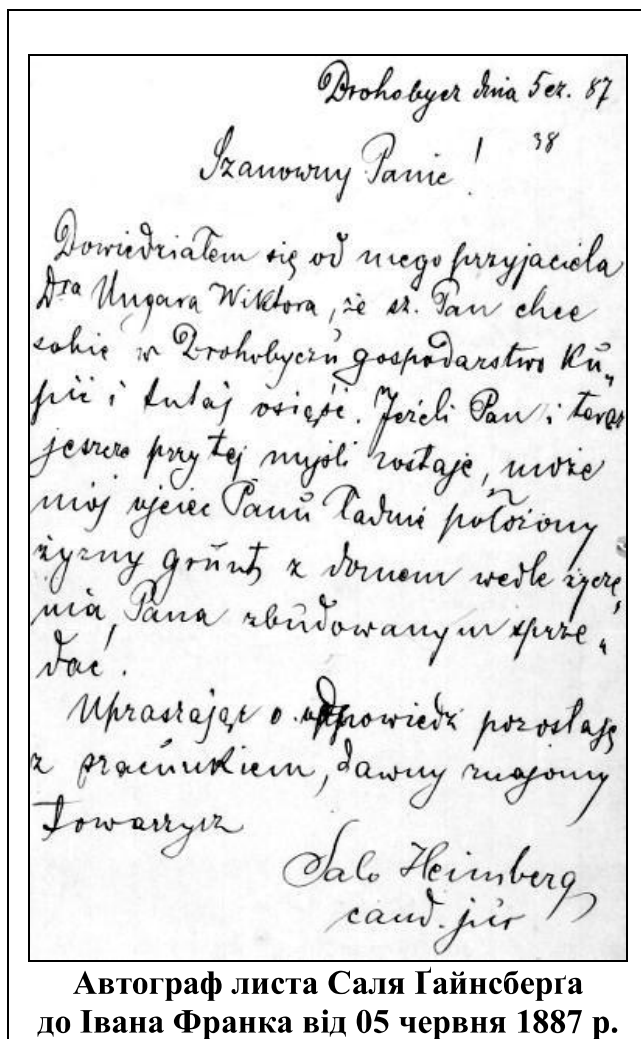 Drohobycz dnia 5 cz. 87
38
Szanowny Panie!
Dowiedziałem się od mego przyjaciela
Dra Ungara Wiktora, że sz. Pan chce
sobie w Drohobyczu gospodarstwo ku„
pić i tutaj osięść. Jeżeli Pan i teraz
jeszcze przy tej myśli zostaje, może
mój ojciec Panu ładnie położony
żyzny grunt z domem wedle życze„
nia Pana zbudowanym sprze„
dać.
Upraszając o odpowiedź pozostaję
z szacunkiem, dawny znajomy
towarzysz
Salo Heimberg
cand. jur
Автограф листа Саля Ґайнсберґа
до Івана Франка від 05 червня 1887 р.